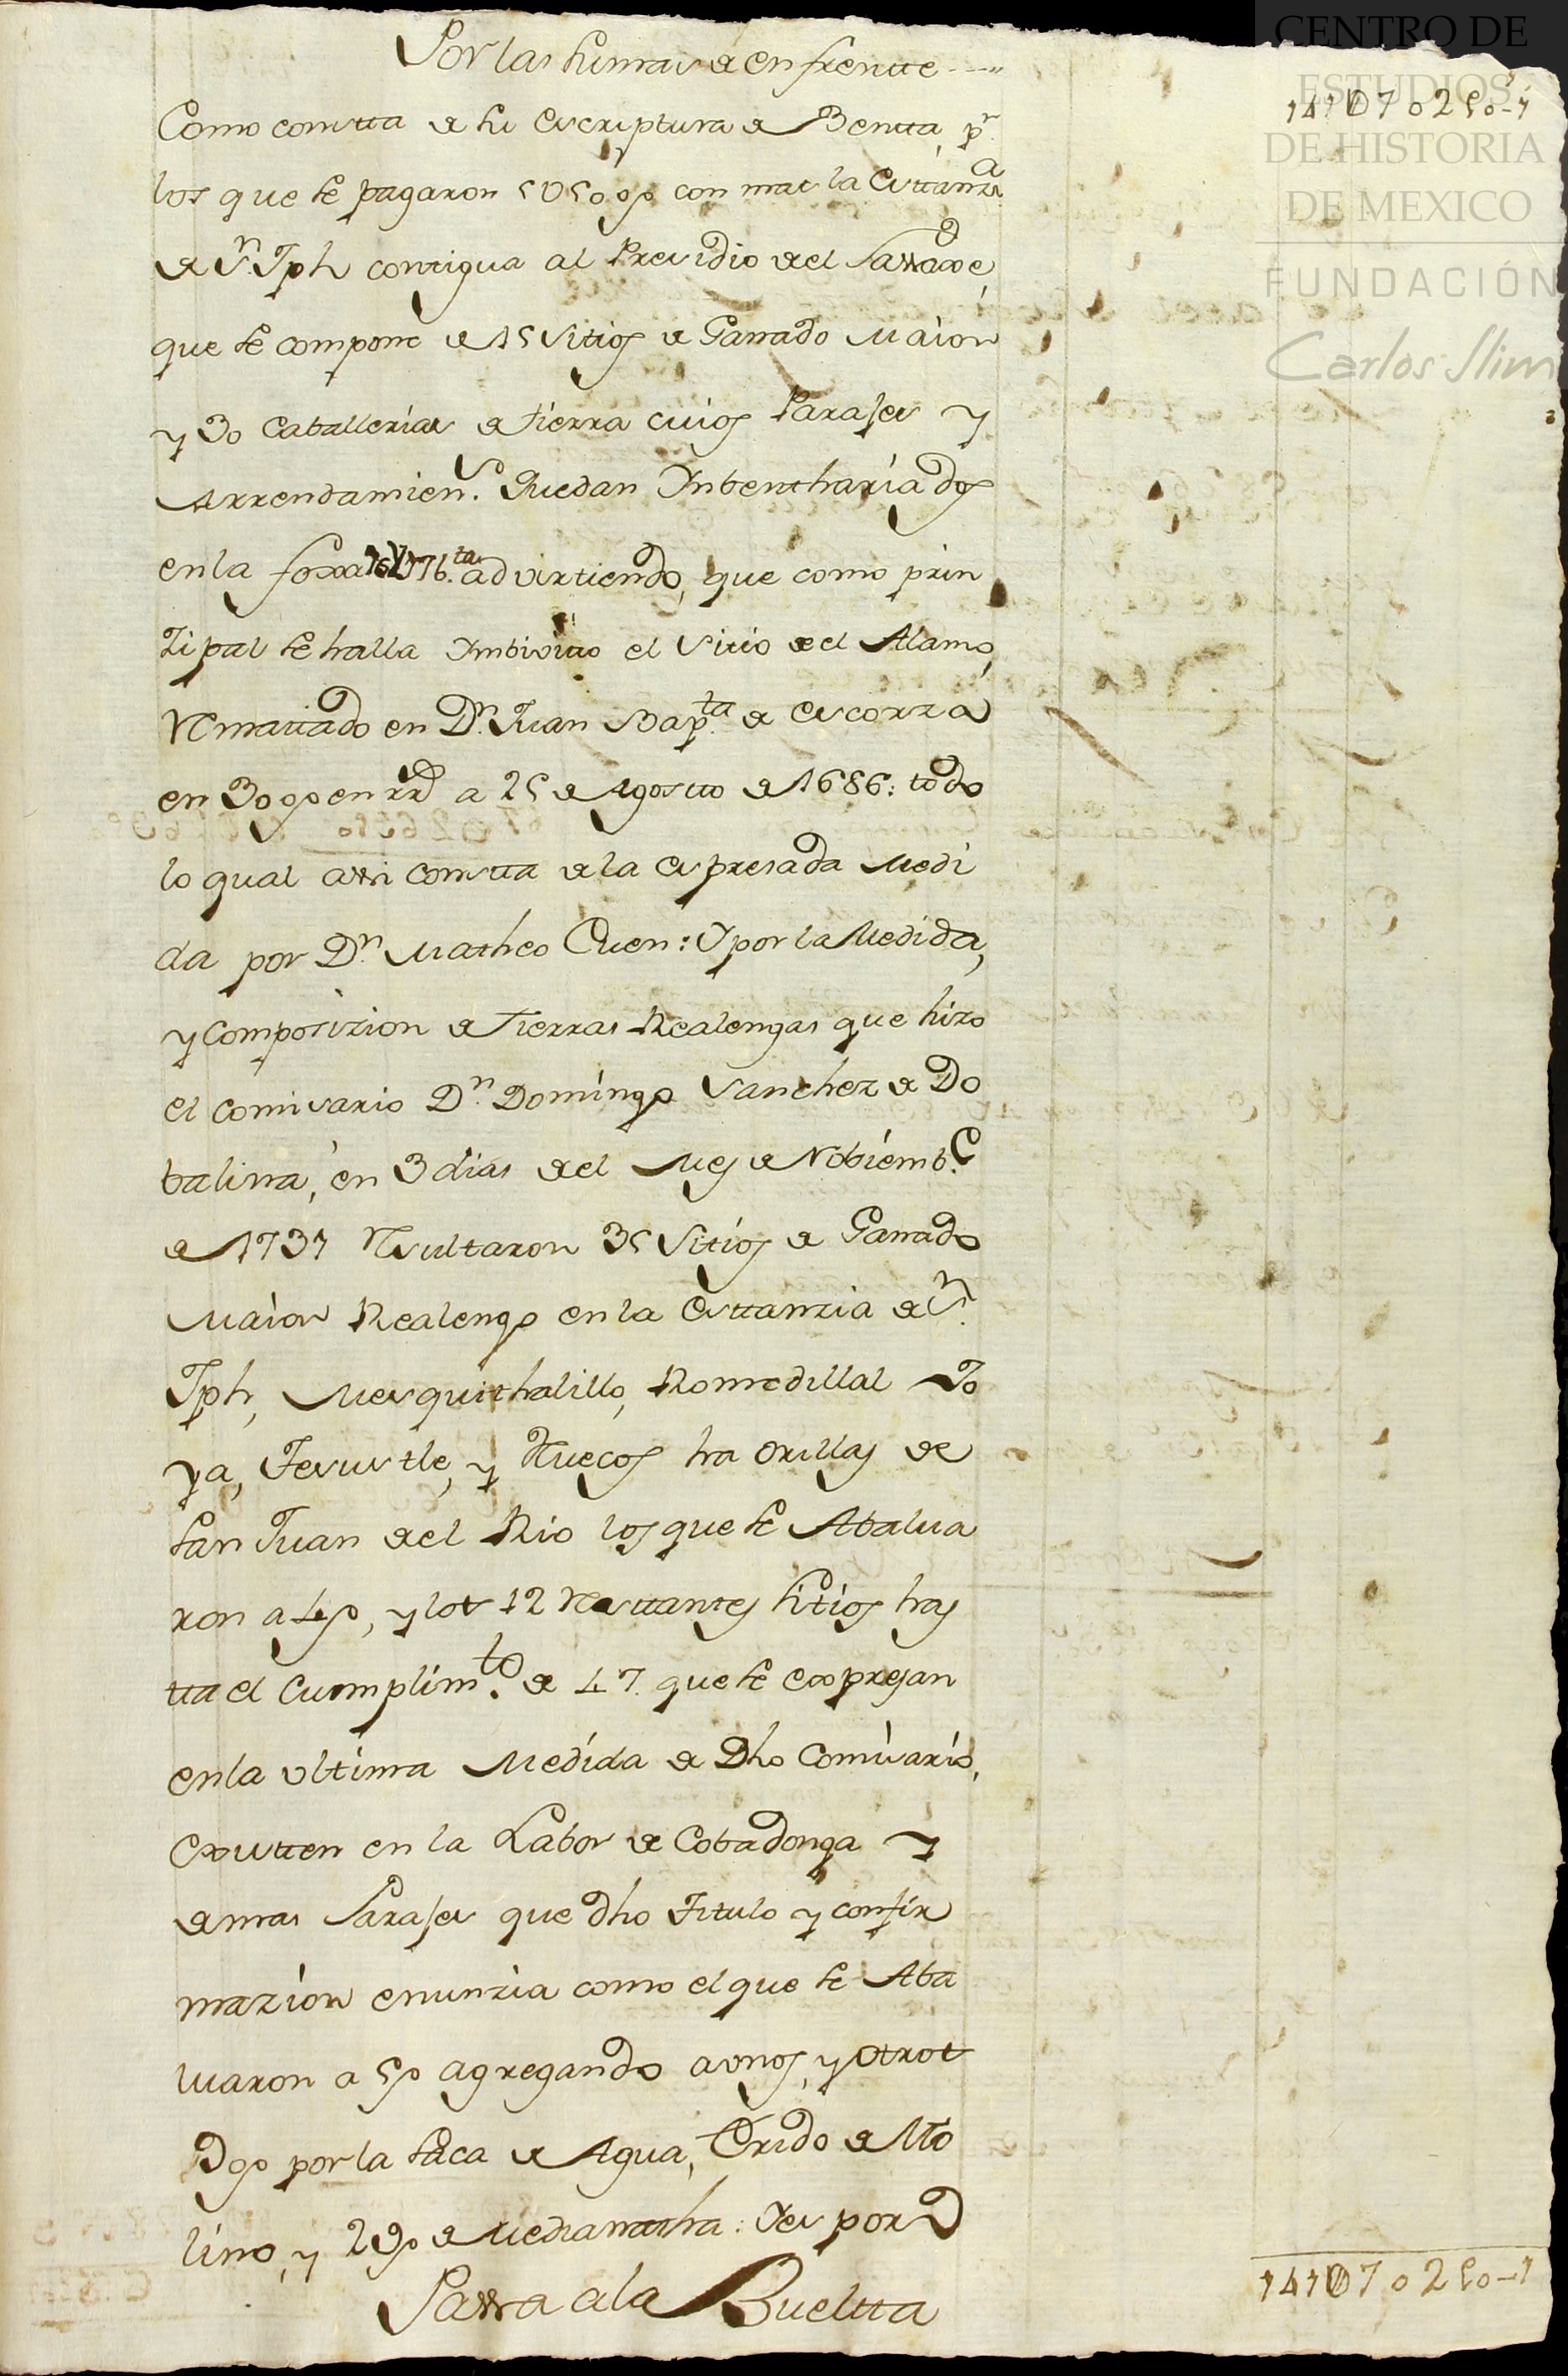 Por las sumas de enfrentte
141U07o250-1
Como constta de su escriptura de Bentta, pr.
los que se pagaron 5U500ps con mas la Esttanza
de Sn. Jph contigua al Presidio de el Passaxe,
que se compone de 15 Sitios de Ganado Maior
y 30 Caballerias de tierra cuios Parajes y
Arrendamiens. Quedan Inbenthariados
en la foxa 76.ta advirtiendo, que como prin
zipal se halla Imbivito el Sitio de el Alamo,
Remattado en Dn. Juan Bapta. de Escorza
en 30ps en rrd a 25 de Agostto de 1686: todo
lo qual assi constta de la espresada Medi
da por Dn. Matheo Cuen: Y por la Medida,
y Composizion de Tierras Realengas que hizo
el Comisario Dn. Domingo Sanchez de Do
balina, en 3 dias de el Mes de Nobiembe.
de 1731 Resultaron 35 Sitios de Ganado
Maior Realengo en la Esttanzia de Sn.
Jph, Mesquithalillo, Romedillal Jo
ya, Tesustle, y Huecos ha orillas de
San Juan de el Rio los que se Abalua
ron a 4ps, y los 12 Resttantes Sitios has
tta el Cumplimto. de 47. que se expresan
en la ultima Medida de Dho Comisario,
Existten en la Labor de Cobadonga y
demas Parajes que dho Titulo y confir
mazion enunzia como el que se Aba
luaron a 5ps agregando a unos, y otros
Dos por la Saca de Agua, Erido de Mo
lino, y 25ps de Media natha: Y es por D
Passa ala Bueltta
141U07o250-1
CENTRO DE
ESTUDIOS
DE HISTORIA
DE MEXICO
FUNDACIÓN
Carlos Slim